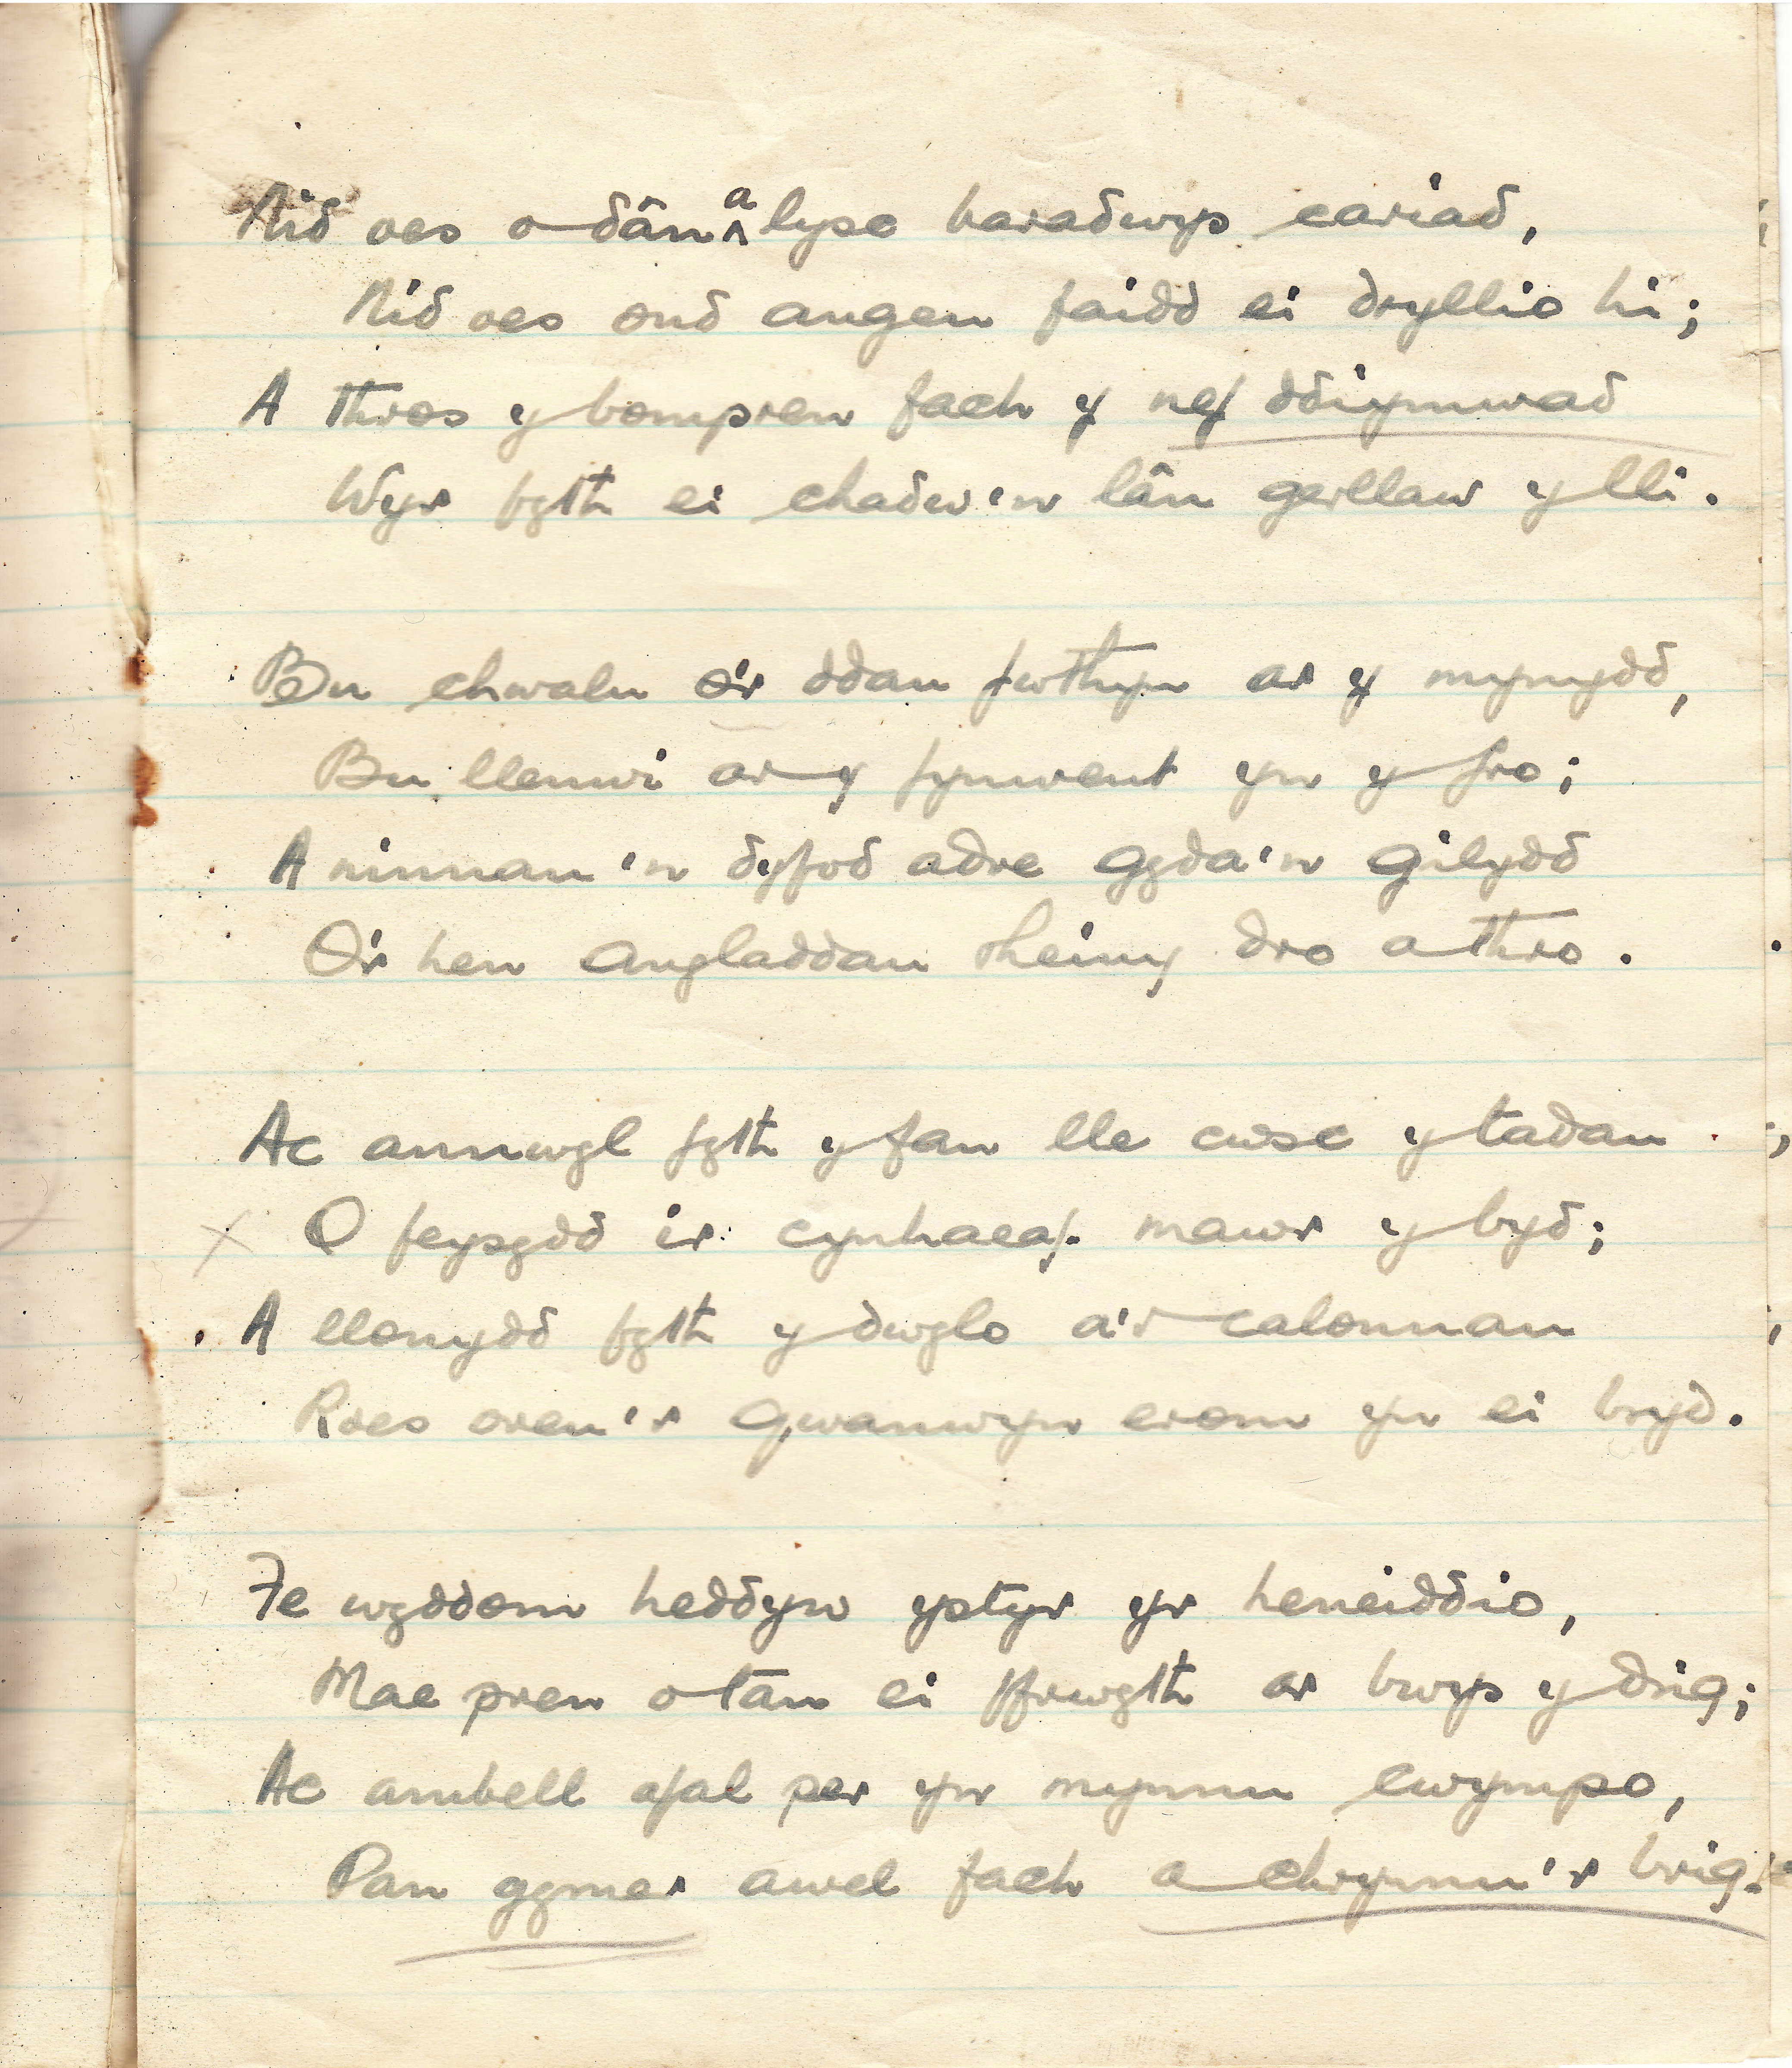 Nid oes o dân a lysc baradwys cariad,
Nid oes ond angen faidd ei dryllio hi;
A thros y bompren fach y nef ddiymwad
Wyr fyth ei chadw'n lân gerllaw y lli.
Bu chwalu o'r ddau fwthyn ar y mynydd,
Bu llenwi ar y fynwent yn y fro;
A ninnau'n dyfod adre gyda'n gilydd
O'r hen angladdau rheiny dro a thro.
Ac annwyl fyth y fan lle cwsc y tadau
O feysydd ir cynhaeaf mawr y byd;
A llonydd fyth y dwylo a'r calonnau
Roes oreu'r gwanwyn erom yn ei bryd.
Fe wyddom heddyw ystyr yr heneiddio,
Mae pren o tan ei ffrwyth ar bwys y drig;
Ac ambell afal per yn mynnu cwympo,
Pan gymer awel fach a chrymu'r brig.